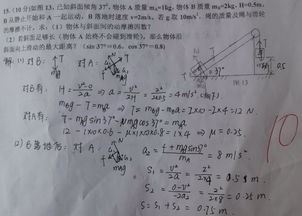 15.(10分)如图13,已知斜面倾角37°,物体A质量mA=1kg,物体B质量mB=2kg,H=0.5m,
B从静止开始和A一起运动,B落地时速度v=2m/s。若g取10m/s²,绳的质量及绳与滑轮
的摩擦不计,求:(1)物体与斜面间的动摩擦因数
(2)若斜面足够长(物体A始终不会碰到滑轮),那么物体沿
斜面向上滑动的最大距离?(sin37°=0.6, cos37°=0.8)
解:(1)对B: 对A:
图13
对B有: H=(v²-0)/2a ⇒ a=v²/2H=2²/(2×0.5)=4m/s²
mBg-T=mBa ⇒ T=mBg-mBa=2×10-2×4=12N
对A有: T-mAg sin37°-μmAg cos37°=ma
12-1×10×0.6-μ×1×10×0.8=1×4 ⇒ μ=0.25.
(2)B落地后: 对A:
a₂=(f+mAg sin37°)/mA=8m/s²
S₁=v²/2a=2²/(2×4)=0.5m
S₂=(0-v²)/-2a₂=2²/(2×8)=0.25m
S=S₁+S₂=0.75m
10